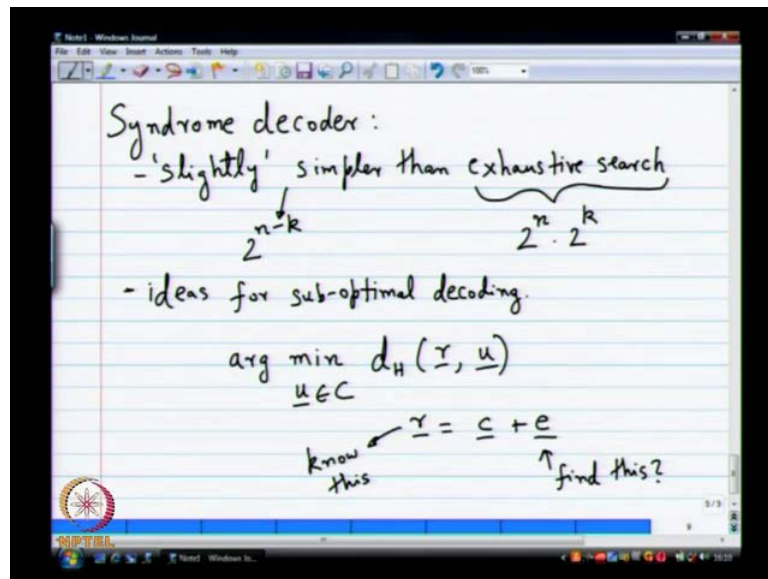 Note1 - Windows Journal
File Edit View Insert Actions Tools Help
100%
Syndrome decoder :
- 'slightly' simpler than exhaustive search
2^{n-k} 2^n · 2^k
- ideas for sub-optimal decoding.
arg min d_H (r, u)
u ∈ C
r = c + e
know this
find this?
3/3
9
NPTEL
Note1 - Windows Jo...
16:10